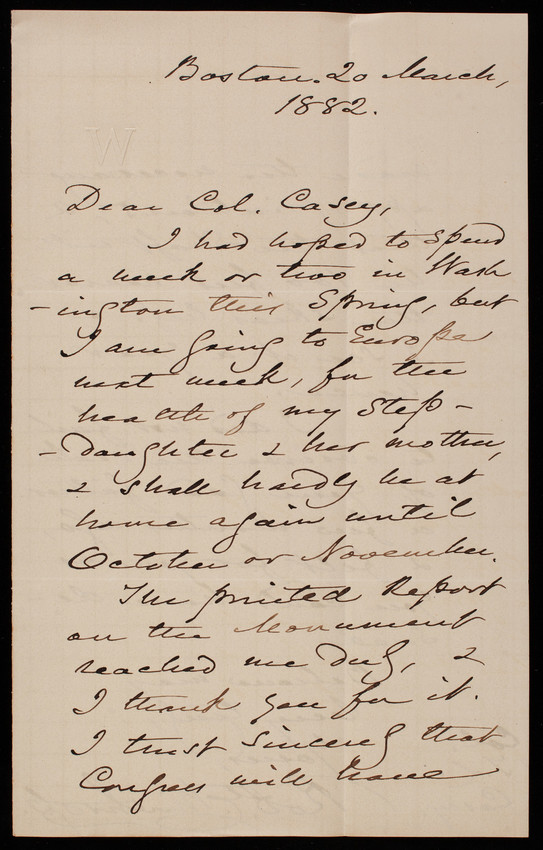 W
Boston. 20 March,
1882.
Dear Col. Casey,
I had hoped to spend
a week or two in Wash
-ington this Spring, but
I am going to Europe
next week, for the
health of my Step-
-daughter & her mother,
& shall hardly be at
home again until
October or November.
The printed Report
on the Monument
reached me duly, &
I thank you for it.
I trust sincerely that
Congress will have